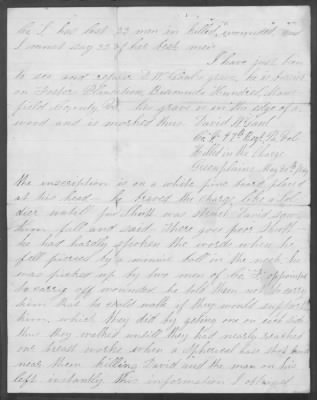 Co I has lost 22 men in killed, wounded, and
I cannot say 22 of her best men
I have just been
to see and repair D W Gant's grave, he is buried
on Foster Plantation, Burmuda Hundred, Chester-
field County Va. his grave is in the edge of a
wood and is marked thus. David W Gant
Co. K. 97th Regt. Pa Vol
Killed in the Charge
Greenplains May 20th 1864
The inscription is on a white pine board placed
at his head. He braved the charge like a Sol-
dier untill Jos. was struck David saw
him fall and said. There goes poor
he had hardly spoken the words when he
fell pierced by a minnie ball in the neck he
was picked up by two men of Co appointed
to carrying off wounded. he told them not to carry
him that he could walk if they would support
him, which they did by getting one on each side
thus they walked untill they had nearly reached
our breast works when a Spherical case
near them killing David and the man on his
left instantly this information I obtained